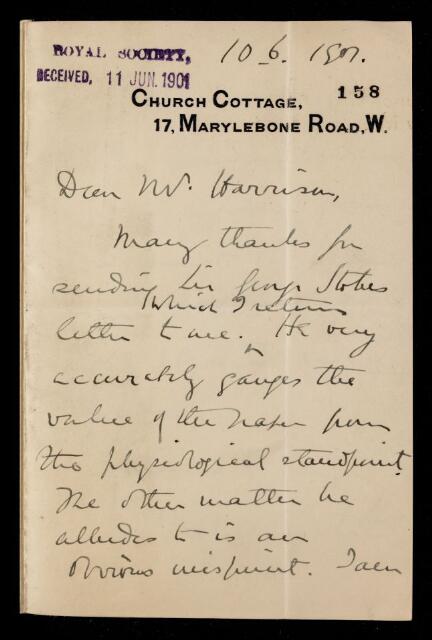 ROYAL SOCIETY,
RECEIVED, 11 JUN. 1901
10_6. 1901.
158
CHURCH COTTAGE,
17, MARYLEBONE ROAD, W.
Dear Mr. Harrison,
Many thanks for
sending Sir George Stokes
which I return
letter to me. He very
accurately gauges the
value of the paper from
the physiological standpoint.
The other matter he
alludes to is an
obvious misprint. I am